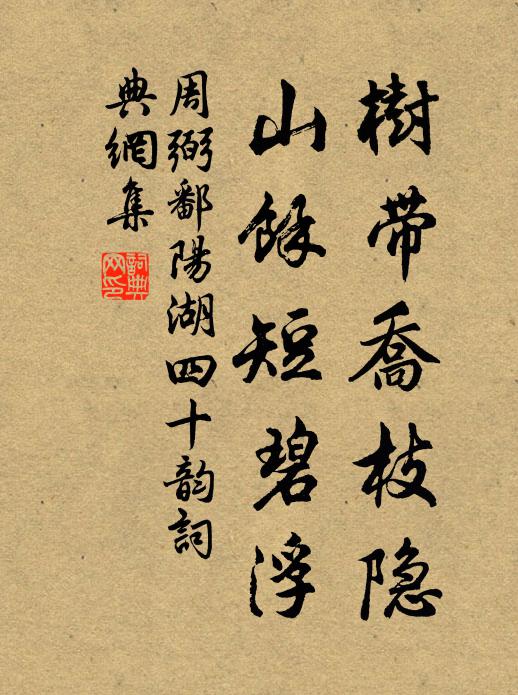 樹帶喬枝隐
山餘短碧浮
周弼鄱陽湖四十韵詞
典網集
詞典網印